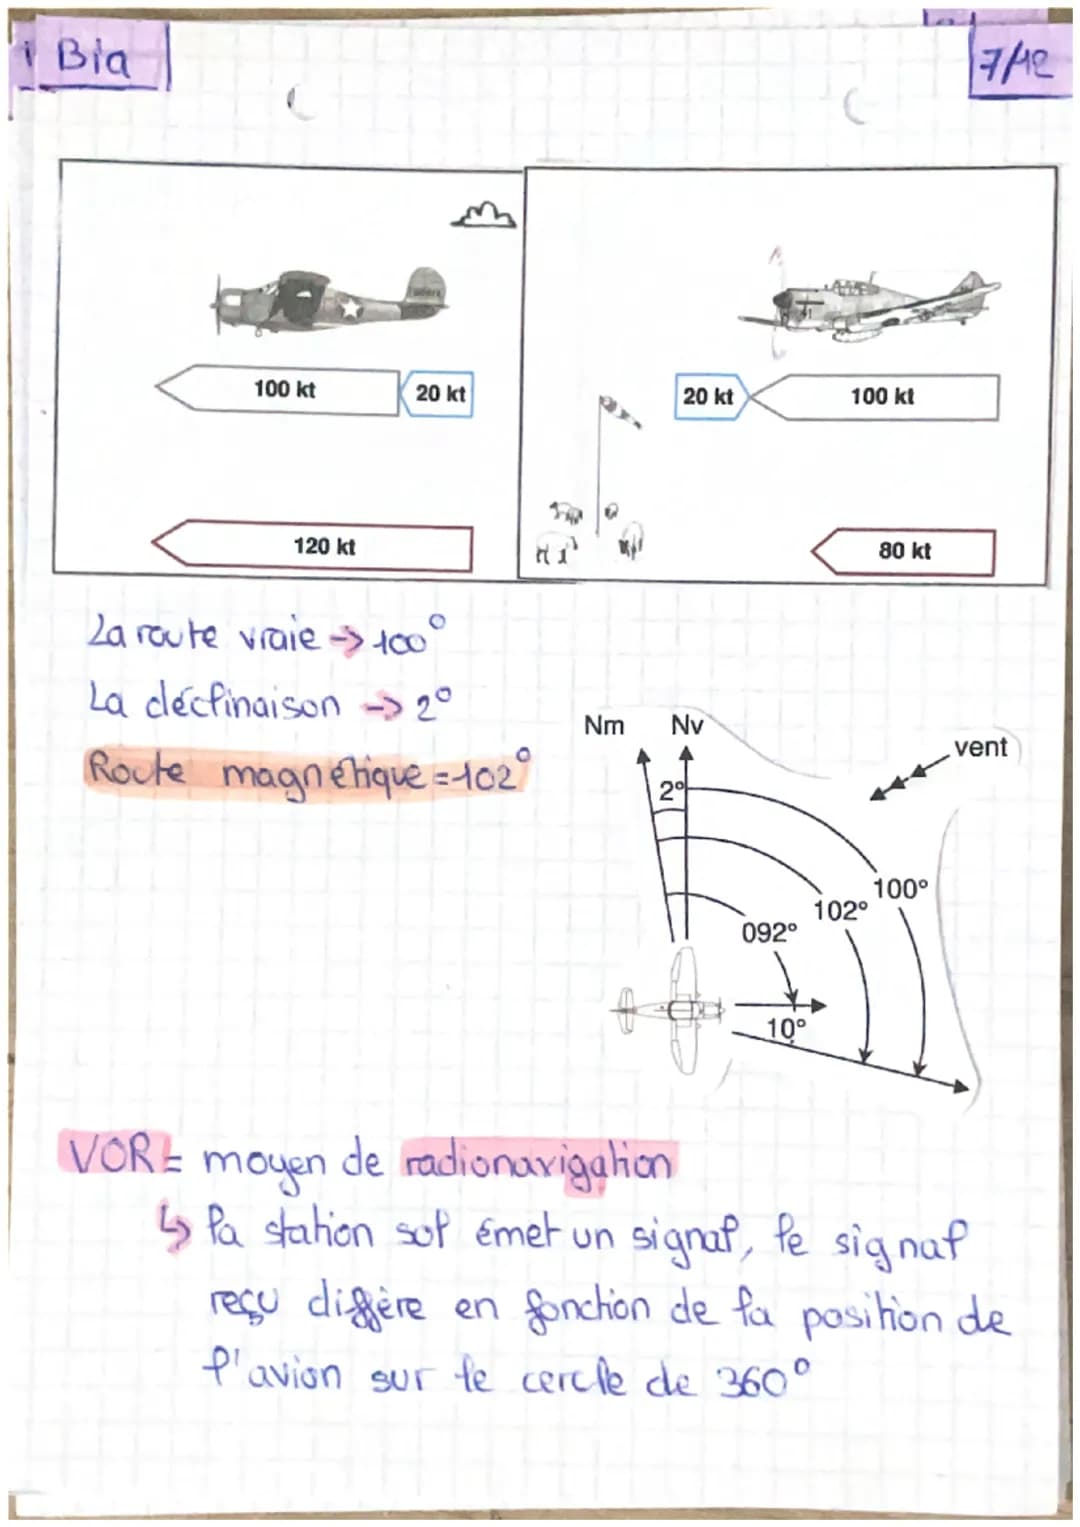 Bia
7/12
100 kt
20 kt
20 kt
100 kt
120 kt
80 kt
La route vraie → 100°
La déclinaison → 2°
Route magnétique = 102°
Nm
Nv
vent
2°
100°
102°
092°
10°
VOR = moyen de radionavigation
↳ la station sol émet un signal, le signal
reçu diffère en fonction de la position de
l'avion sur le cercle de 360°